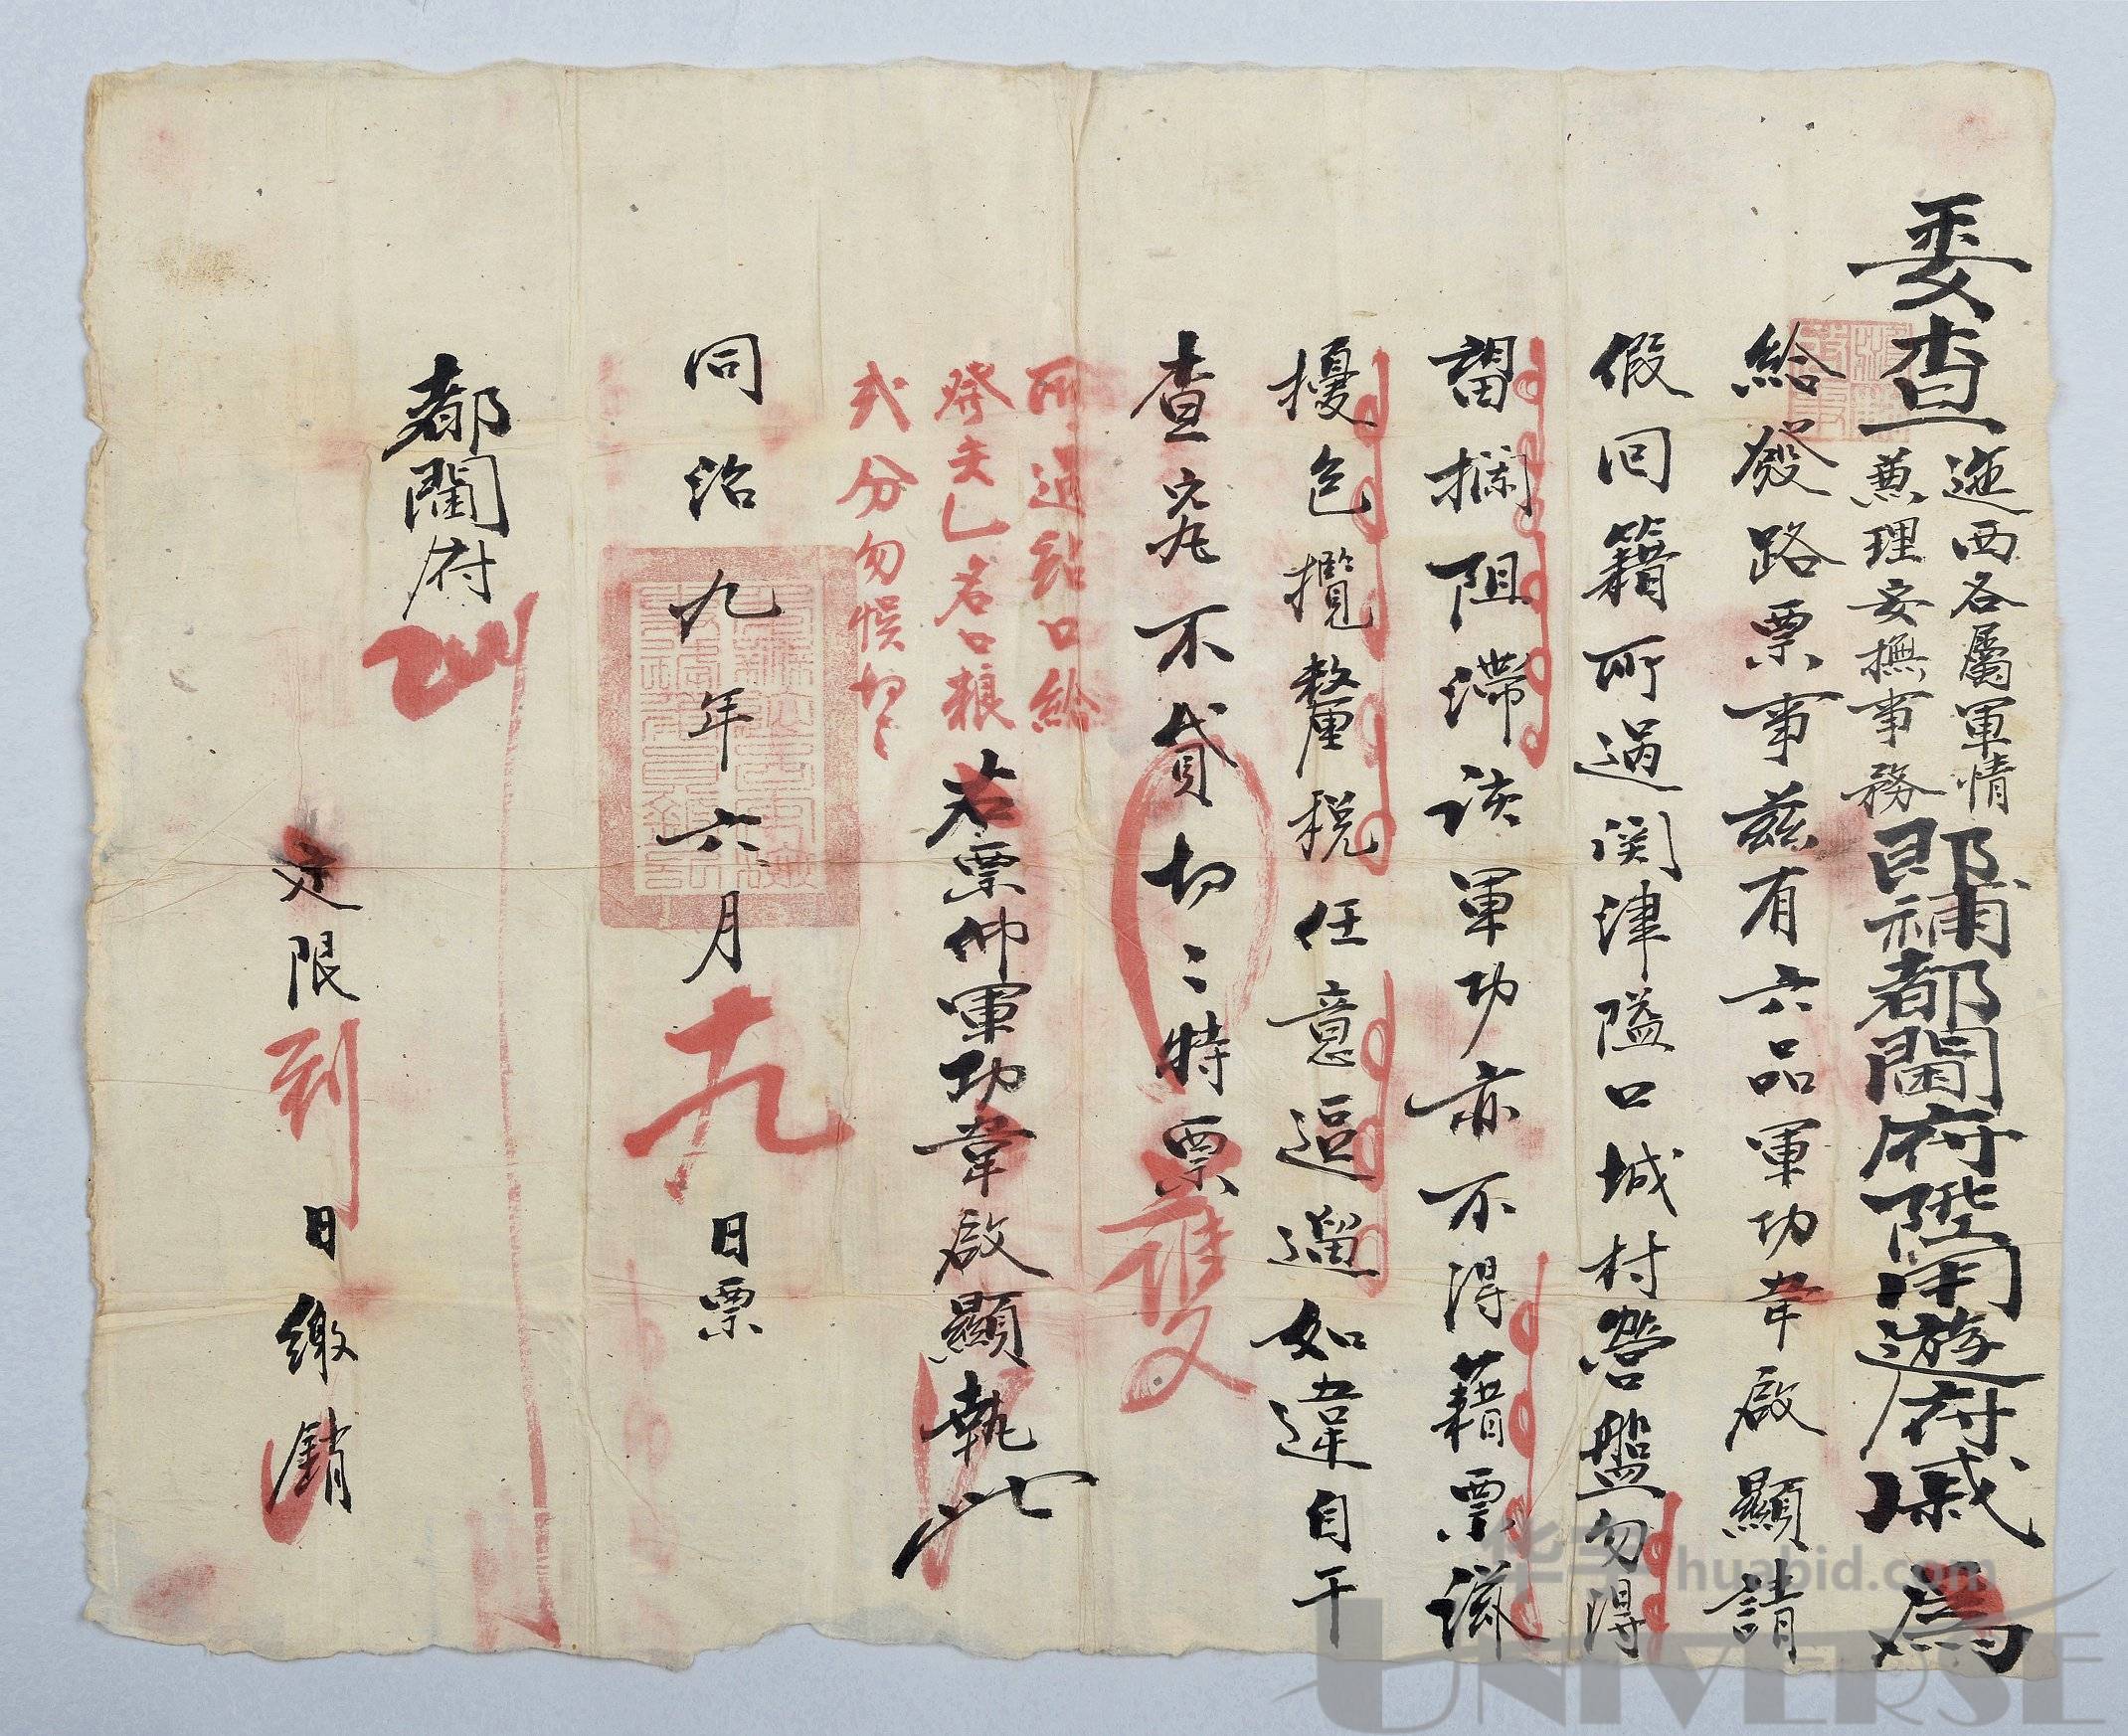 委查迤西各屬軍情兼理安撫事務即補都閫府陞用遊府戚 爲
給發路票事茲有六品軍功韋啟顯請
假回籍所過関津隘口城村營盤勿得
留攔阻滯該軍功亦不得藉票滋
擾包攬釐税任意逗遛如違自干
查究不貸切〻特票
所過站口給
發夫乚名口粮
弍分勿悮切〻
右票仰軍功韋啟顯執此
同治九年六月十九日票
都閫府
定限到日繳銷
雙
华宇
huabid.com
UNIVERSE